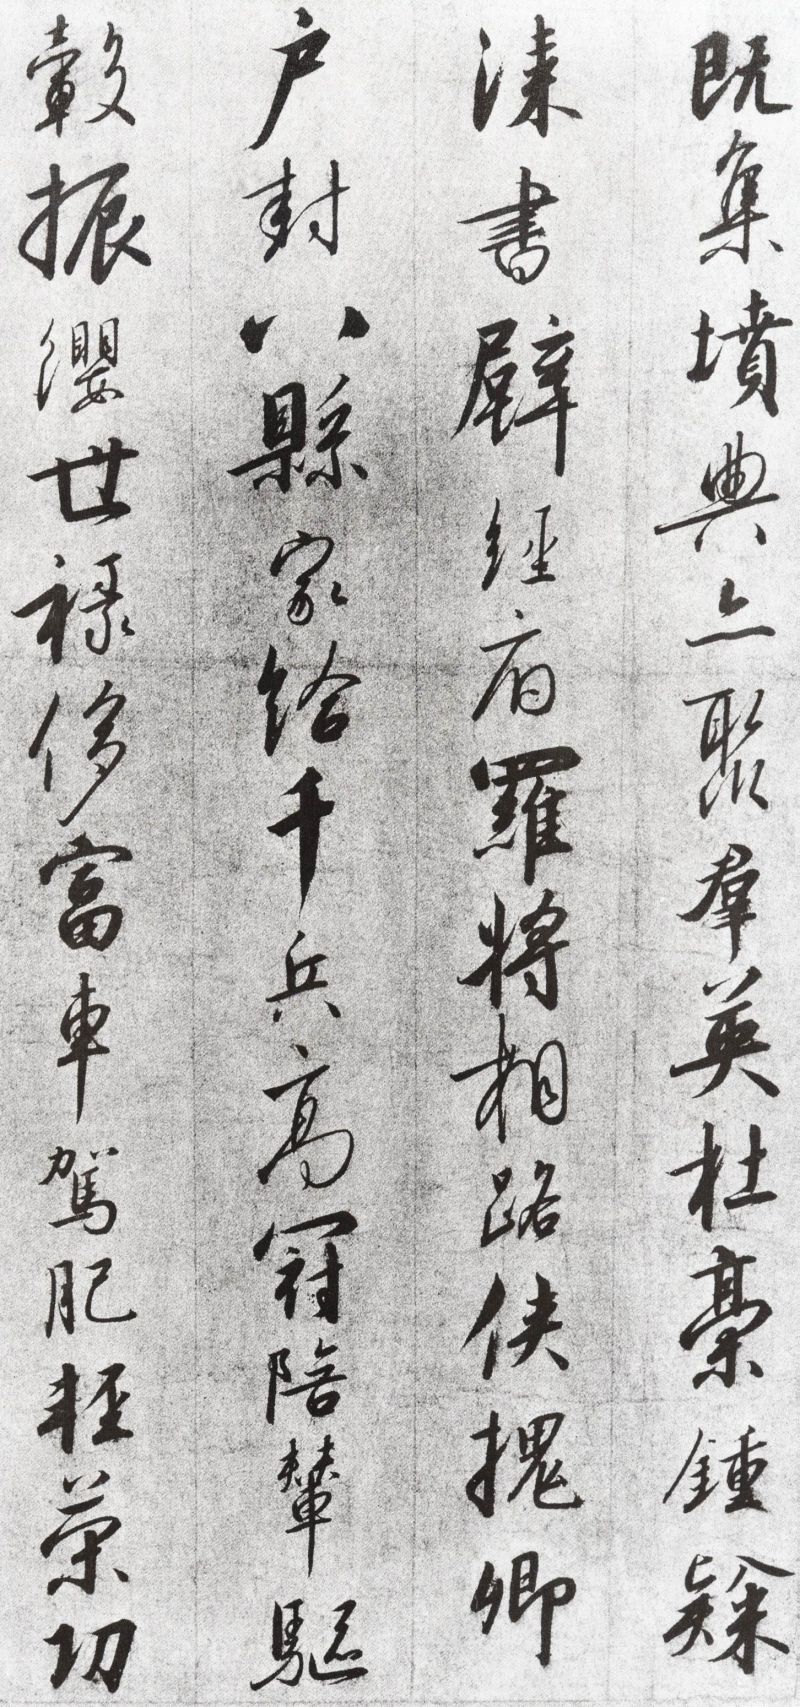 既集墳典亦聚羣英杜稾鍾隸
漆書壁經府羅將相路俠槐卿
户封八縣家給千兵高冠陪輦驅
轂振纓世祿侈富車駕肥輕策功